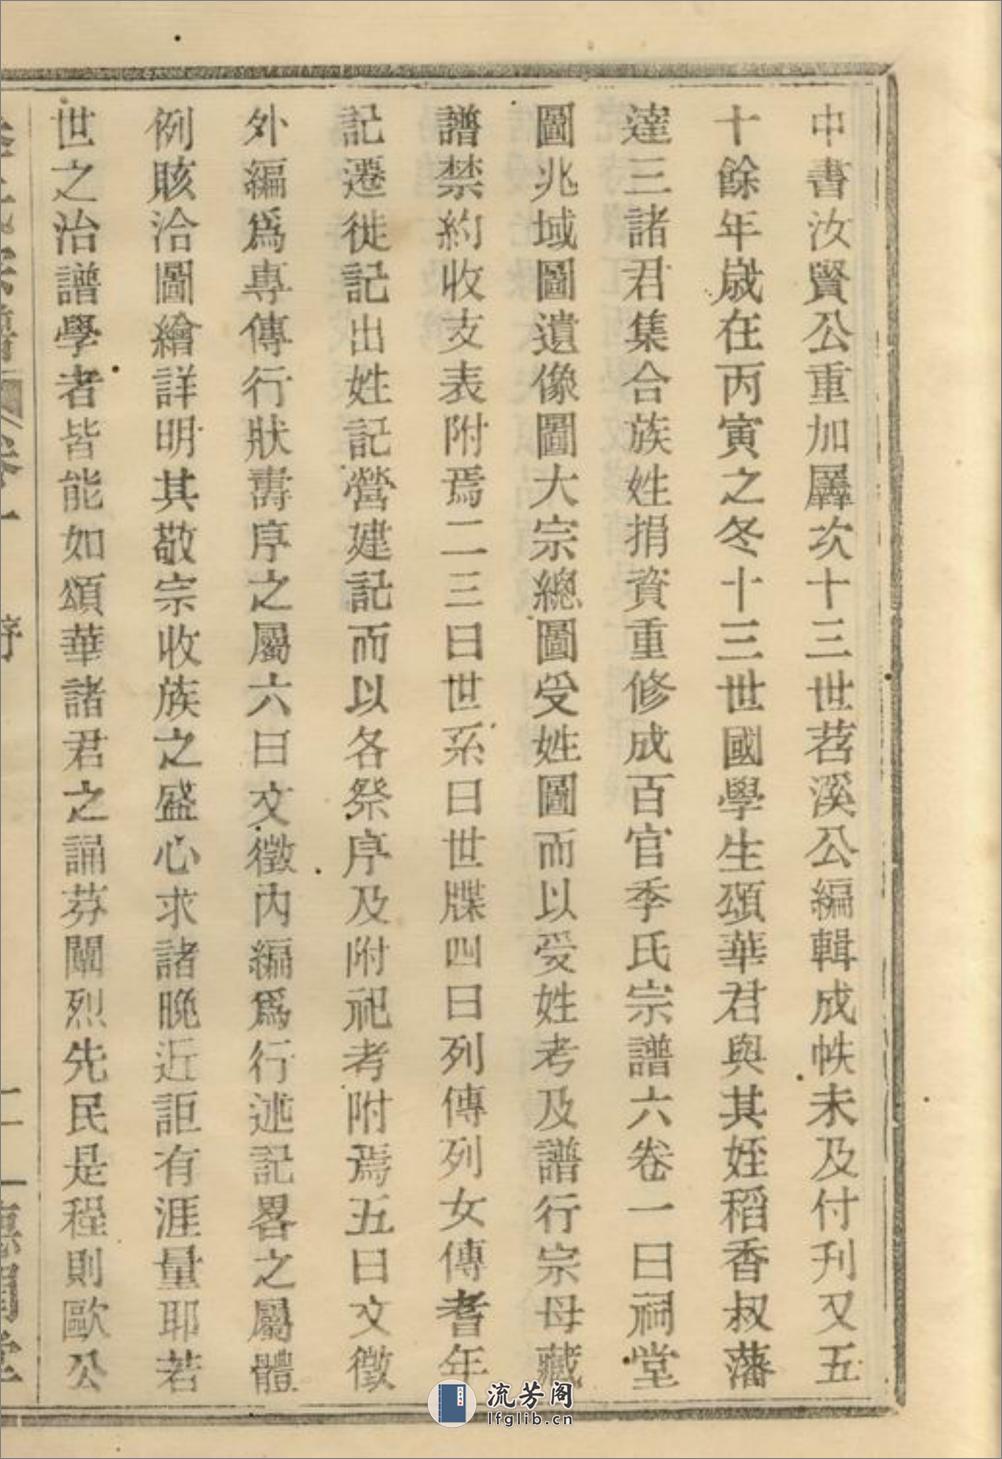 中書汝賢公重加羼次十三世苕溪公編輯成帙未及付刋又五
十餘年歲在丙寅之冬十三世國學生頌華君與其姪稻香叔藩
達三諸君集合族姓捐資重修成百官季氏宗譜六卷一曰祠堂
圖兆域圖遺像圖大宗總圖受姓圖而以受姓考及譜行宗母藏
譜禁約收支表附焉二三曰世系曰世牒四曰列傳列女傳耆年
記遷徙記出姓記營建記而以各祭序及附祀考附焉五曰文徵
外編爲專傳行狀壽序之屬六曰文徵內編爲行述記畧之屬體
例賅洽圖繪詳明其敬宗收族之盛心求諸晚近詎有涯量耶若
世之治譜學者皆能如頌華諸君之誦芬闡烈先民是程則歐公
卷一 序 二
流芳阁
lfglib.cn